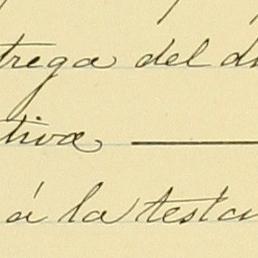 trega del d
tiva
á la testa